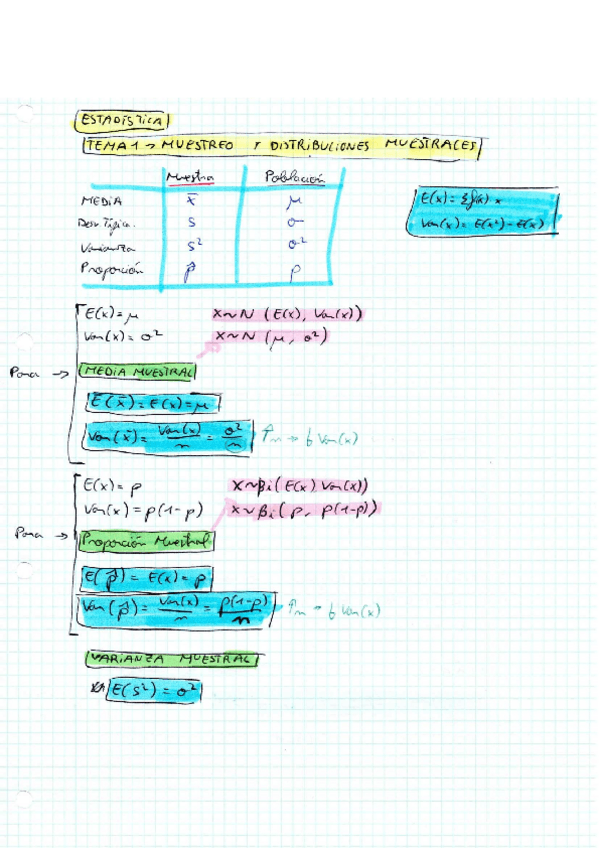 ESTADÍSTICA
TEMA 1 → MUESTREO Y DISTRIBUCIONES MUESTRALES
Muestra Población
MEDIA x̄ μ
Desv Típica. s σ
Varianza s² σ²
Proporción p̂ p
E(x) = Σf(x) · x
Var(x) = E(x²) - E(x)
E(x) = μ
Var(x) = σ²
x ~ N (E(x), Var(x))
x ~ N (μ, σ²)
Para → MEDIA MUESTRAL
E(x̄) = E(x) = μ
Var(x̄) = Var(x)/n = σ²/n ↑n → ↓ Var(x)
E(x) = p
Var(x) = p(1-p)
x ~ βi (E(x) Var(x))
x ~ βi (p, p(1-p))
Para → Proporción Muestral
E(p̂) = E(x) = p
Var(p̂) = Var(x)/n = p(1-p)/n ↑n → ↓ Var(x)
VARIANZA MUESTRAL
E(s²) = σ²